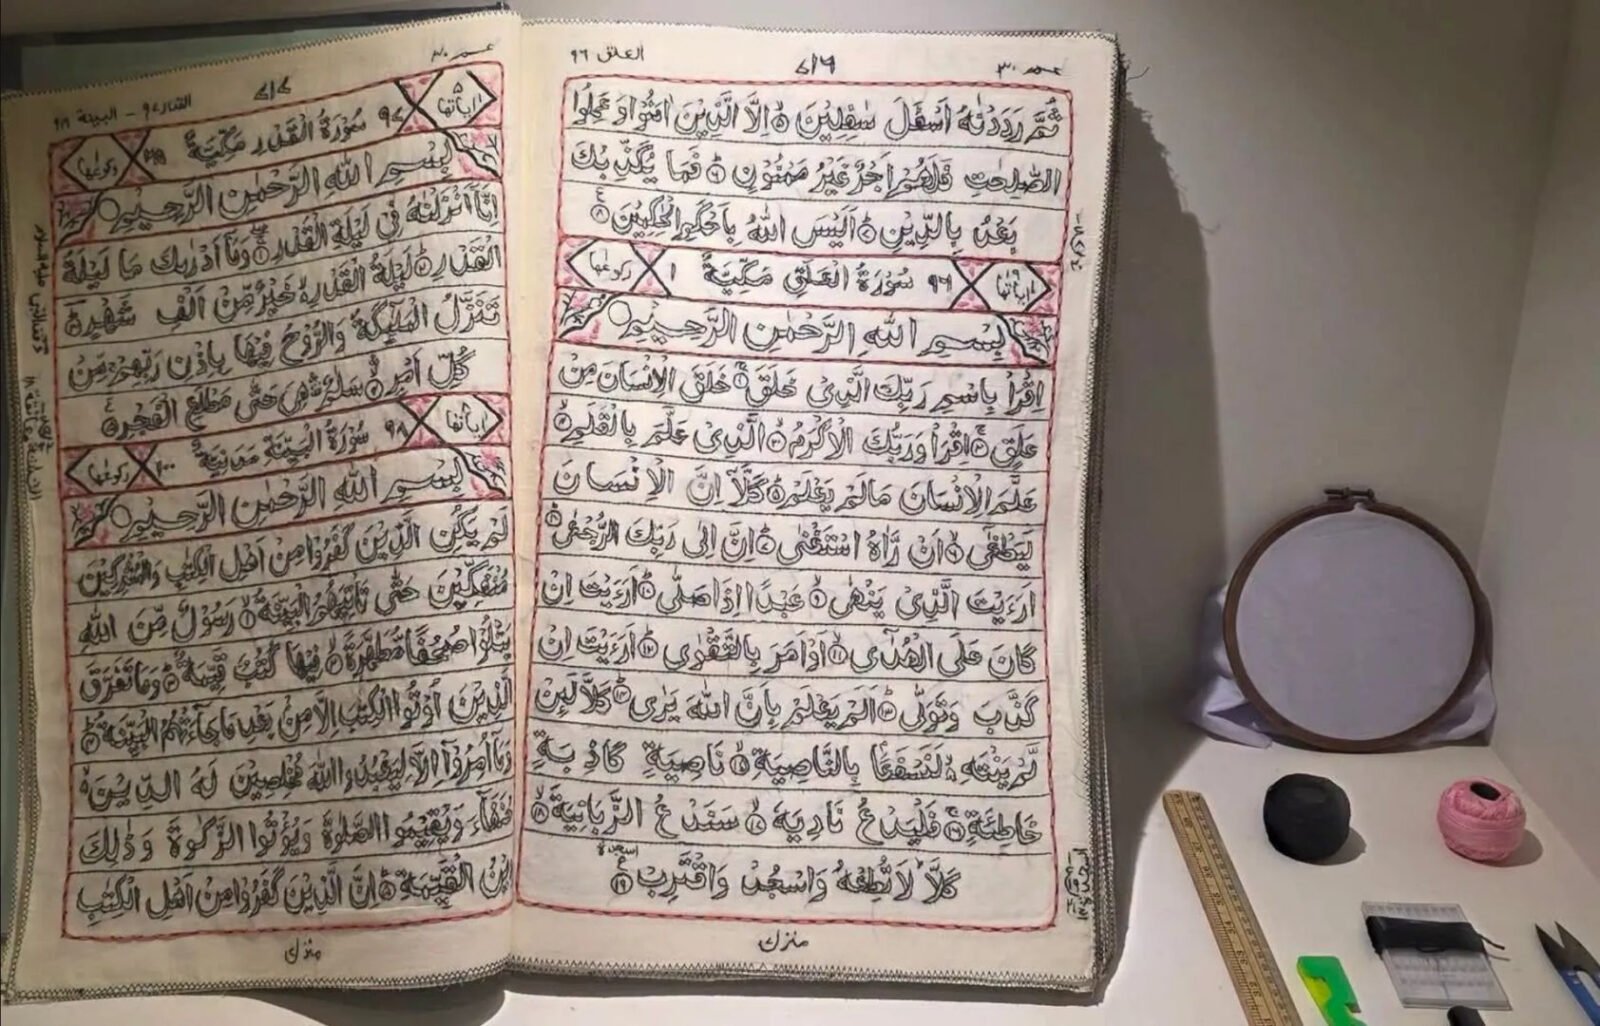 عم ٣٠
٧١٦
العلق ٩٦
ثُمَّ رَدَدْنٰهُ اَسْفَلَ سٰفِلِيْنَ ۵ اِلَّا الَّذِيْنَ اٰمَنُوْا وَعَمِلُوا
الصّٰلِحٰتِ فَلَهُمْ اَجْرٌ غَيْرُ مَمْنُوْنٍ ۶ فَمَا يُكَذِّبُكَ
بَعْدُ بِالدِّيْنِ ۷ اَلَيْسَ اللّٰهُ بِاَحْكَمِ الْحٰكِمِيْنَ ۸
اٰيَاتُهَا ١٩ ٩٦ سُوْرَةُ الْعَلَقِ مَكِّيَّةٌ ١ رُكُوْعُهَا
بِسْمِ اللّٰهِ الرَّحْمٰنِ الرَّحِيْمِ
اِقْرَاْ بِاسْمِ رَبِّكَ الَّذِيْ خَلَقَ ۱ خَلَقَ الْاِنْسَانَ مِنْ
عَلَقٍ ۲ اِقْرَاْ وَرَبُّكَ الْاَكْرَمُ ۳ الَّذِيْ عَلَّمَ بِالْقَلَمِ ۴
عَلَّمَ الْاِنْسَانَ مَا لَمْ يَعْلَمْ ۵ كَلَّآ اِنَّ الْاِنْسَانَ
لَيَطْغٰى ۶ اَنْ رَّاٰهُ اسْتَغْنٰى ۷ اِنَّ اِلٰى رَبِّكَ الرُّجْعٰى ۸
اَرَءَيْتَ الَّذِيْ يَنْهٰى ۹ عَبْدًا اِذَا صَلّٰى ۱۰ اَرَءَيْتَ اِنْ
كَانَ عَلَى الْهُدٰى ۱۱ اَوْ اَمَرَ بِالتَّقْوٰى ۱۲ اَرَءَيْتَ اِنْ
كَذَّبَ وَتَوَلّٰى ۱۳ اَلَمْ يَعْلَمْ بِاَنَّ اللّٰهَ يَرٰى ۱۴ كَلَّا لَئِنْ
لَّمْ يَنْتَهِ لَنَسْفَعًا بِالنَّاصِيَةِ ۱۵ نَاصِيَةٍ كَاذِبَةٍ
خَاطِئَةٍ ۱۶ فَلْيَدْعُ نَادِيَهٗ ۱۷ سَنَدْعُ الزَّبَانِيَةَ ۱۸
كَلَّا لَا تُطِعْهُ وَاسْجُدْ وَاقْتَرِبْ ۱۹
منزل
عم ٣٠
٧١٧
القدر ٩٧ - البينة ٩٨
اٰيَاتُهَا ٥ ٩٧ سُوْرَةُ الْقَدْرِ مَكِّيَّةٌ ٢٥ رُكُوْعُهَا
بِسْمِ اللّٰهِ الرَّحْمٰنِ الرَّحِيْمِ
اِنَّآ اَنْزَلْنٰهُ فِيْ لَيْلَةِ الْقَدْرِ ۱ وَمَآ اَدْرٰىكَ مَا لَيْلَةُ
الْقَدْرِ ۲ لَيْلَةُ الْقَدْرِ خَيْرٌ مِّنْ اَلْفِ شَهْرٍ ۳
تَنَزَّلُ الْمَلٰٓئِكَةُ وَالرُّوْحُ فِيْهَا بِاِذْنِ رَبِّهِمْ مِّنْ
كُلِّ اَمْرٍ ۴ سَلٰمٌ هِيَ حَتّٰى مَطْلَعِ الْفَجْرِ ۵
اٰيَاتُهَا ٨ ٩٨ سُوْرَةُ الْبَيِّنَةِ مَدَنِيَّةٌ ١٠٠ رُكُوْعُهَا
بِسْمِ اللّٰهِ الرَّحْمٰنِ الرَّحِيْمِ
لَمْ يَكُنِ الَّذِيْنَ كَفَرُوْا مِنْ اَهْلِ الْكِتٰبِ وَالْمُشْرِكِيْنَ
مُنْفَكِّيْنَ حَتّٰى تَاْتِيَهُمُ الْبَيِّنَةُ ۱ رَسُوْلٌ مِّنَ اللّٰهِ
يَتْلُوْا صُحُفًا مُّطَهَّرَةً ۲ فِيْهَا كُتُبٌ قَيِّمَةٌ ۳ وَمَا تَفَرَّقَ
الَّذِيْنَ اُوْتُوا الْكِتٰبَ اِلَّا مِنْ بَعْدِ مَا جَآءَتْهُمُ الْبَيِّنَةُ ۴
وَمَآ اُمِرُوْٓا اِلَّا لِيَعْبُدُوا اللّٰهَ مُخْلِصِيْنَ لَهُ الدِّيْنَ
حُنَفَآءَ وَيُقِيْمُوا الصَّلٰوةَ وَيُؤْتُوا الزَّكٰوةَ وَذٰلِكَ
دِيْنُ الْقَيِّمَةِ ۵ اِنَّ الَّذِيْنَ كَفَرُوْا مِنْ اَهْلِ الْكِتٰبِ
منزل